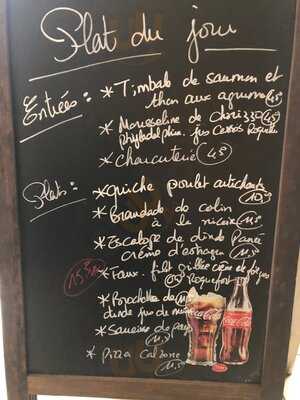 Plat du jour
Entrées :
* Timbale de saumon et
thon aux agrumes 4,5
* Mousseline de
Philadelphia, jus
* Charcuterie 4,5
Plats :
* quiche poulet artichauts
* Brandade de colin
à la niçoise 11,5
* Escalope de dinde Panée
crème d'estragon 11,5
* Faux-filet grillée crème de
Roquefort
15,5
* Paupiette de
dinde jus de
* Saucisse de pays
11,5
* Pizza Calzone
11,5
Coca-Cola
Coca-Cola